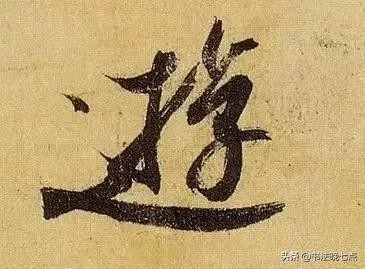 遊
头条 @书法晚七点